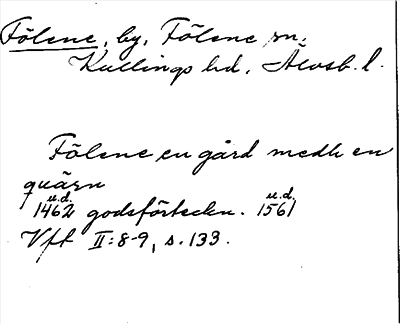 Fölene, by, Fölene sn.
Kullings hd. Älvsb. l.
Fölene en gård medh en
quärn
u.d. u.d.
1462 godsförteckn. 1561
Vft II:8-9, s. 133.